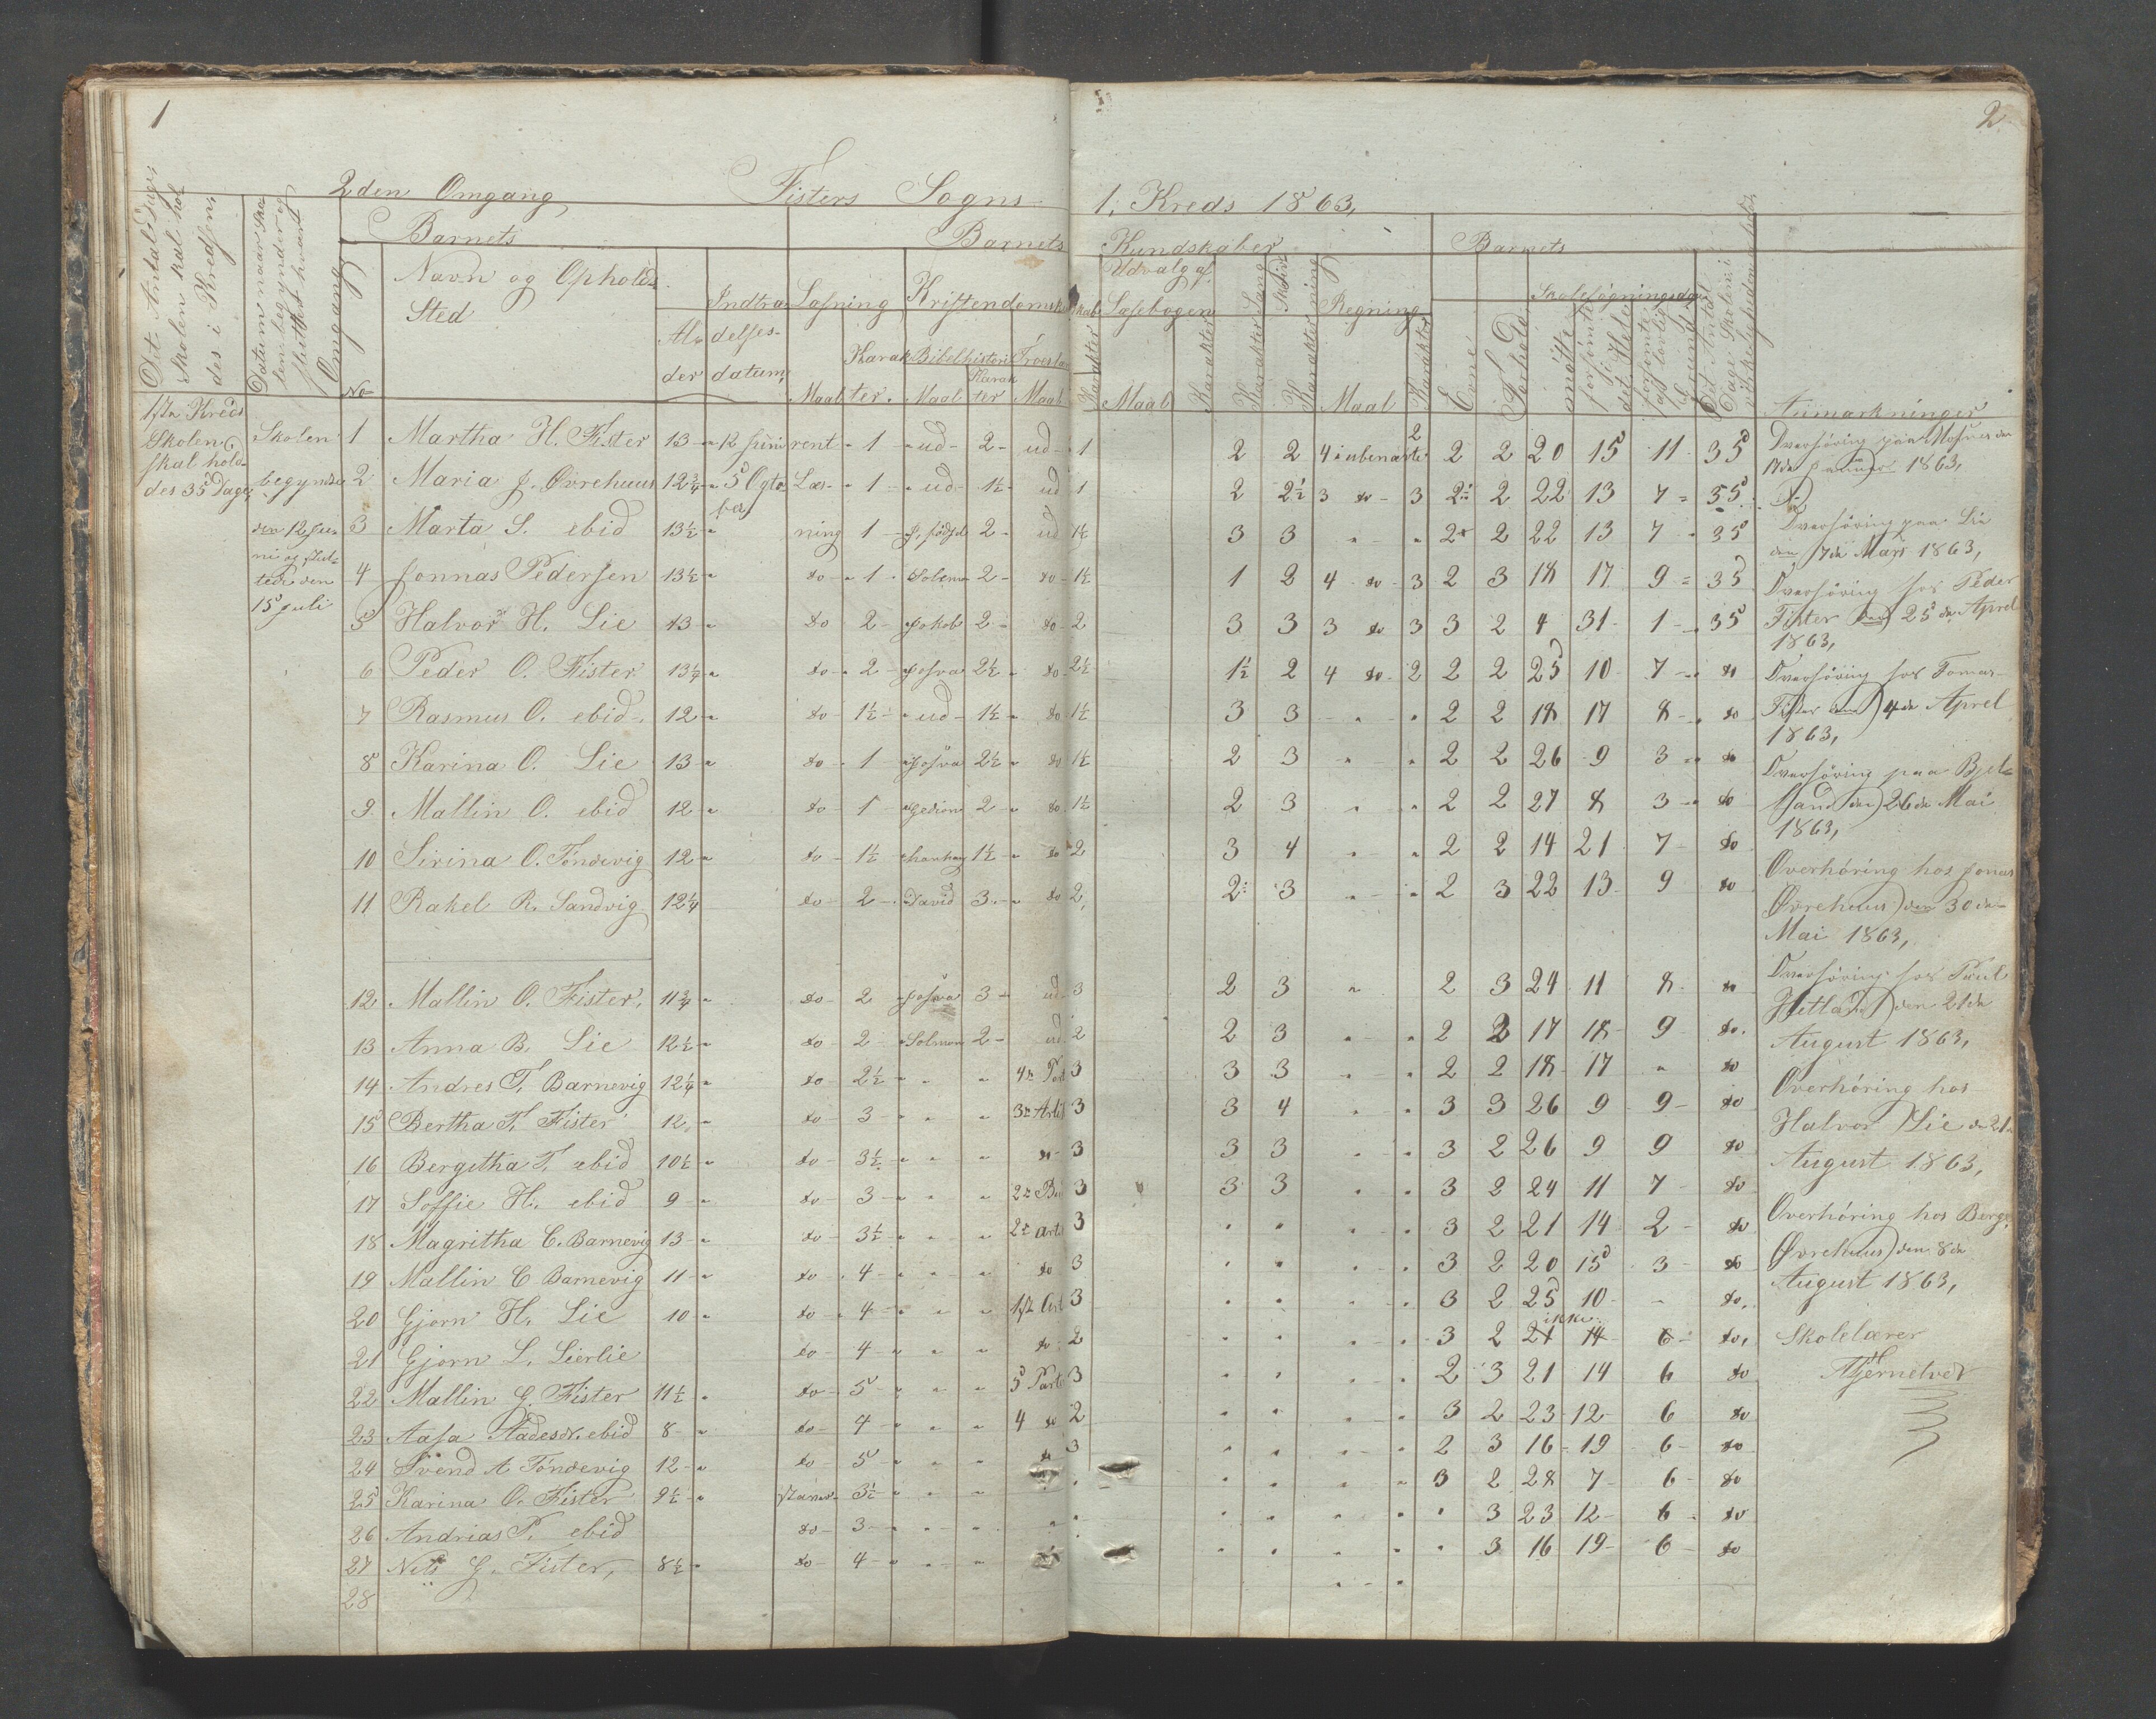 1
2
2den Omgang Fisters Sogns 1, Kreds 1863,
Det Antal Dage Skolen skal holdes i Kredsen,
Datum naar Skolen begynder og sluttes hvert Omgang
No
Barnets
Navn og Opholds
Sted
Alder
Indtrædelsesdatum,
Barnets Kundskaber
Læsning
Maal
Karakter.
Kristendomskundskab
Bibelhistorie
Maal
Karakter
Troeslære
Maal
Karakter
Udvalg af
Læsebogen
Maal
Karakter
Karakter Sang
Karakter Skrivning
Regning
Maal
Karakter
Barnets
Evne
Forhold
Skolesøgningsdage
mødte
forsømte i det Hele
forsømte af lovlig Grund
Det Antal Dage Skolen i
Anmærkninger
1ste Kreds
Skolen
skal hol-
des 35 Dage,
Skolen
begyndte
den 12 Ju-
ni og slut-
tede den
15 Juli
1 Martha H. Fister 13 " 12 Juni rent " 1 " ud 2 ud 1 2 2 4 i ubenævnte 2 2 2 20 15 11 35
2 Maria J. Øvrehuus 12¾ " 5 Ogtober Læs- 1 " ud 1½ ud 1 2 2½ 3 do 3 2½ 2 22 13 7 35
3 Marta S. ebid 13½ " ning 1 2 ud 1½ 3 3 " " 2 2 22 13 7 35
4 Jonnas Pedersen 13½ " do 1 2 do 1½ 1 2 4 do 3 2 3 18 17 9 35
5 Halvor H. Lie 13 " do 2 Jakob 2 do 2 3 3 3 do 3 3 2 4 31 1 35
6 Peder O. Fister 13¼ " do 2 Josva 2½ do 2½ 1½ 2 4 do 2 2 2 25 10 7 do
7 Rasmus O. ebid 12 " do 1½ ud 1½ do 1½ 3 3 " " 2 2 18 17 8 do
8 Karina O. Lie 13 " do 1 Josva 2½ do 1½ 2 3 " " 2 2 26 9 3 do
9 Mallin O. ebid 12 " do 1 Gedion 2 do 1½ 2 3 " " 2 2 27 8 3 do
10 Sirina O. Tøndevig 12 " do 1½ 1½ do 2 3 4 " " 2 2 14 21 7 do
11 Rakel R. Sandvig 12¼ do 2 David 3 do 2 2 3 " " 2 3 22 13 9 do
12 Mallin O. Fister, 11¾ " do 2 Josva 3 ud 3 2 3 " 2 3 24 11 8 do
13 Anna B. Lie 12½ " do 2 Solmon 2 ud 2 2 3 " " 2 2 17 18 9 do
14 Andres T. Barnevig 12¼ " do 2½ " " 4de Part 3 3 3 " " 2 2 18 17 " do
15 Bertha T. Fister 12 " do 3 " " 3de Artik 3 3 4 " " 3 3 26 9 9 do
16 Bergitha T. ebid 10½ " do 3½ " " do 3 3 3 " " 3 2 26 9 9 do
17 Soffie H. ebid 9 " do 3 " " 3 3 3 " " 3 2 24 11 7 do
18 Magritha C. Barnevig 13 " do 3½ " " 2de Arti 3 " " " " 3 2 21 14 2 do
19 Mallin C Barnevig 11 " do 4 " " do 3 " " " " 3 2 20 15 3 do
20 Gjørn H. Lie 10 " do 4 " " 1ste Art 3 " " " " 3 2 25 10 - do
21 Gjørn L. Lierlie do 4 " " do 2 " " " " 3 2 ikke 21 14 6 do
22 Mallin G. Fister 11½ " do 5 " " 5 Part 3 " " " " 2 3 21 14 6 do
23 Aasa Aadesdr. ebid 8 " do 4 " " 4 do 2 " " " " 3 2 23 12 6 do
24 Svend A Tøndevig 12 " do 5 " " do 3 " " " " 2 3 16 19 6 do
25 Karina O. Fister 9½ " staver 3½ " " " " " " 3 2 28 7 6 do
26 Andrias P. ebid do 3 " " " " " " " " 3 23 12 6 do
27 Nils G. Fister, 8½ " do 4 " " " " " " " 3 16 19 6 do
28
Overhøring paa Mosnes den
17de Januar 1863,
Overhøring paa Lie
den 17de Mars 1863,
Overhøring hos Peder
Fister den 25de Aprel
1863,
Overhøring hos Tomas
Fister den 4de Aprel
1863,
Overhøring paa Bjel-
land den 26de Mai
1863,
Overhøring hos Jonas
Øvrehuus den 30de
Mai 1863,
Overhøring hos Poul
Hetland den 21de
August 1863,
Overhøring hos
Halvor Lie d. 21de
August 1863,
Overhøring hos Berge
Øvrehuus den 8de
August 1863,
Skolelærer